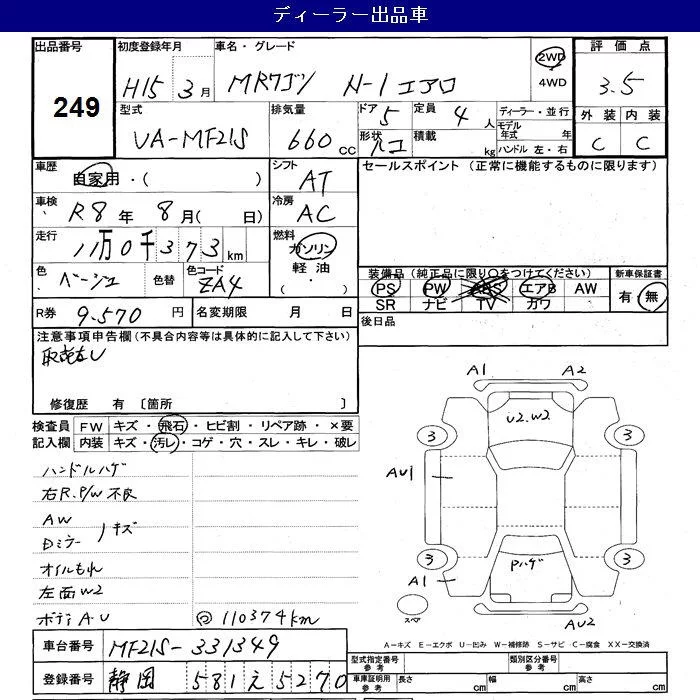 ディーラー出品車
出品番号 初度登録年月 車名・グレード 評価点
249
H15 3月 MRワゴン N-1エアロ 2WD 4WD 3.5
型式 排気量 ドア 5 定員 4人 ディーラー・並行 外装 内装
UA-MF21S 660cc 形状 積載 kg モデル年式 年 ハンドル 左・右 C C
車歴 自家用・( ) シフト AT セールスポイント (正常に機能するものに限ります)
車検 R8年 8月( 日) 冷房 AC
走行 11万0千373km 燃料 ガソリン 軽油 ・( )
色 ベージュ 色替 色コード ZA4
装備品(純正品に限り○をつけてください) 新車保証書
PS PW ABS エアB AW 有・無
SR ナビ TV カワ
R券 9.570円 名変期限 月 日 後日品
注意事項申告欄(不具合内容等は具体的に記入して下さい)
取説なし
修復歴 有 〔箇所 〕
検査員 FW キズ・飛石・ヒビ割・リペア跡・×要
記入欄 内装 キズ・汚レ・コゲ・穴・スレ・キレ・破レ
ハンドルハゲ
右R.P/W不良
AW
Dミラー キズ
オイルもれ
左面W2
ボデーA.U 110374km
A1 A2
U2.W2
3 3
AU1
Pハゲ
3 3
A1
スペア AU2
A-キズ E-エクボ U-凹み W-補修跡 S-サビ C-腐食 XX-交換済
車台番号 MF21S-331349
登録番号 静岡 581え5270
型式指定番号 参考 類別区分番号 参考
車庫証明用 参考 長さ cm 幅 cm 高さ cm